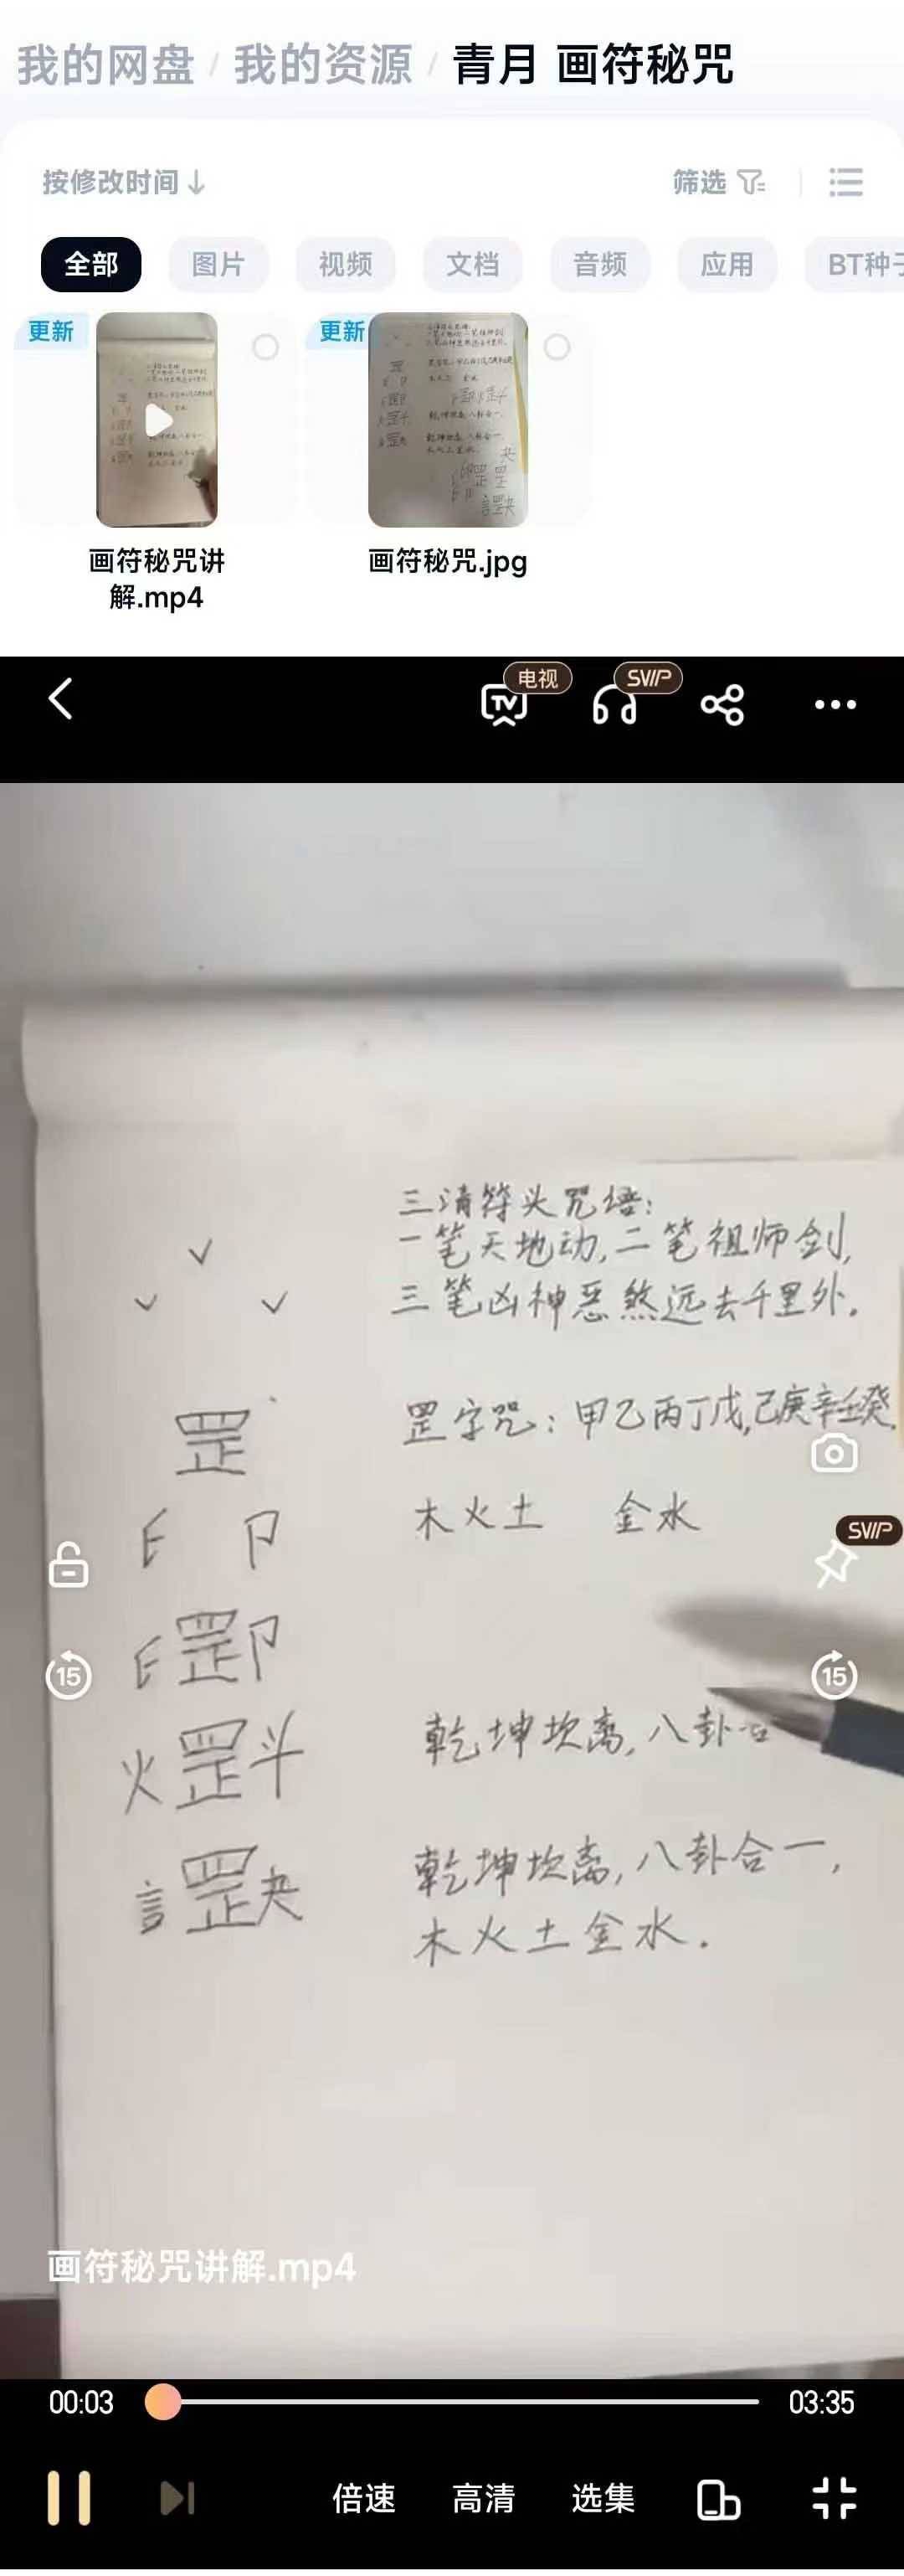 我的网盘 / 我的资源 / 青月 画符秘咒
按修改时间 筛选
全部 图片 视频 文档 音频 应用 BT种子
更新 更新
画符秘咒讲解.mp4 画符秘咒.jpg
电视 SVIP
TV
三清符头咒语:
一笔天地动,二笔祖师剑,
三笔凶神恶煞远去千里外。
罡 罡字咒:甲乙丙丁戊,己庚辛壬癸.
木火土 金水
SVIP
罡
15 15
火罡斗 乾坤坎离,八卦合
言罡夬 乾坤坎离,八卦合一,
木火土金水.
画符秘咒讲解.mp4
00:03 03:35
倍速 高清 选集